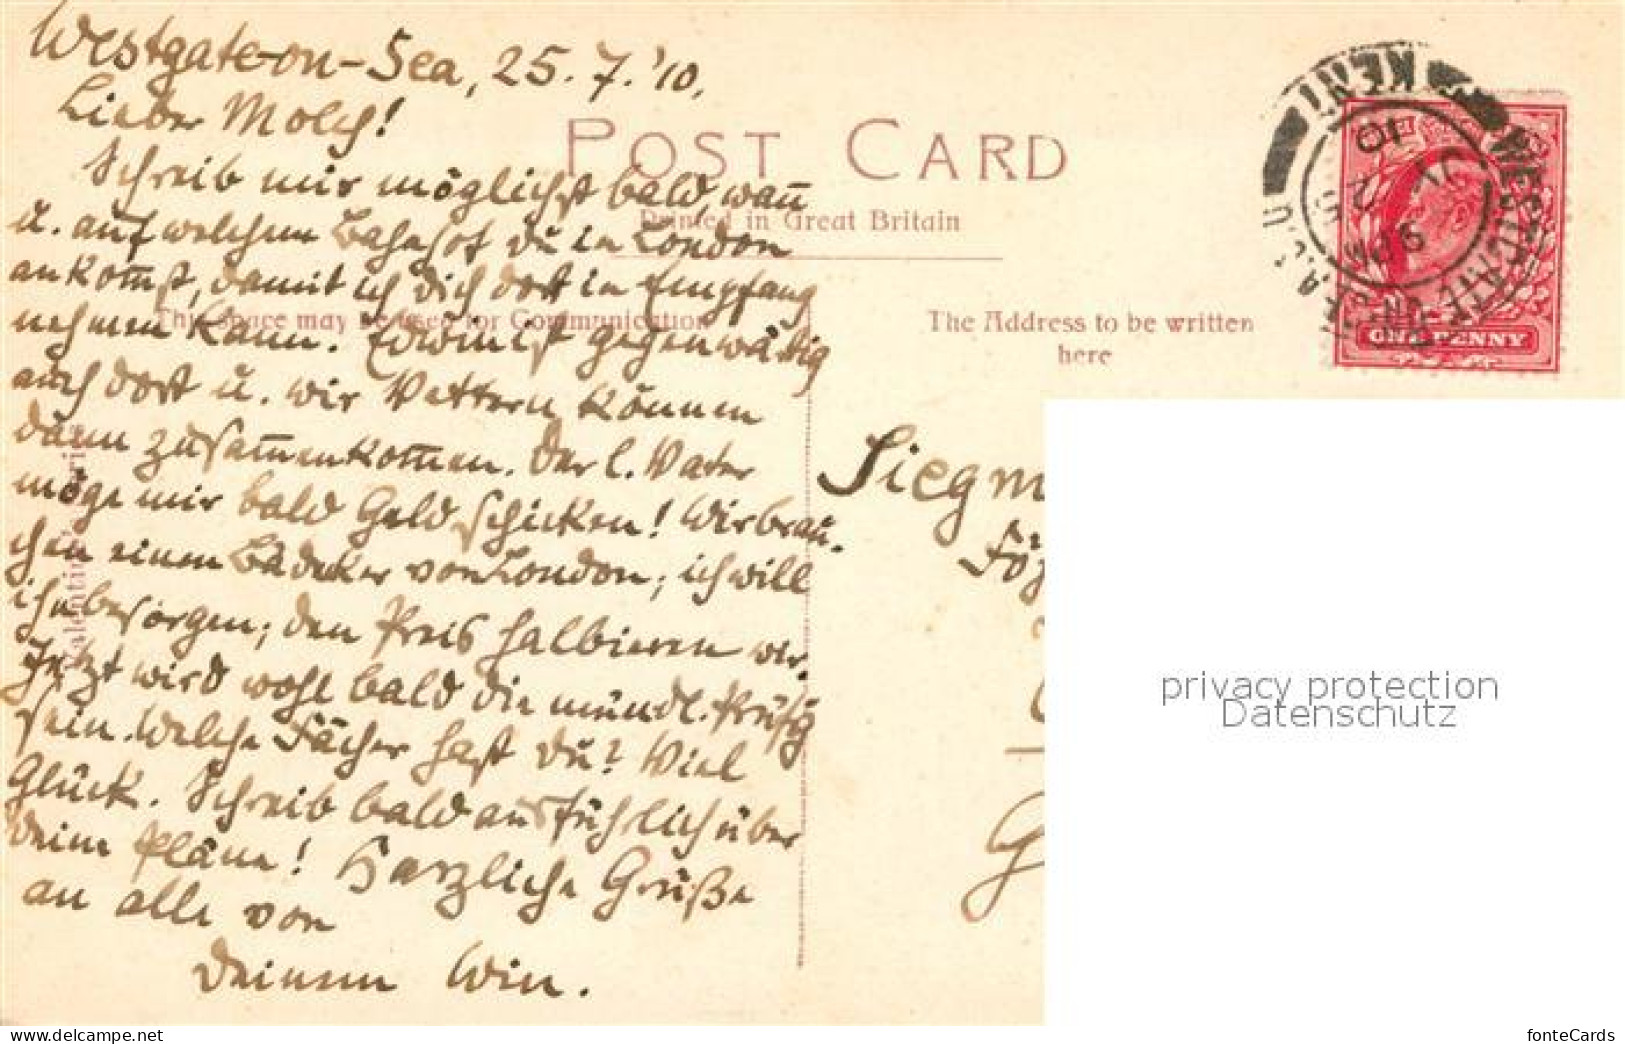 Westgate-on-Sea, 25. 7. '10.
Lieber Molch!
Schreib mir möglichst bald, wan̄
u. auf welchem Bahnhof du in London
ankom̄st, damit ich dich dort in Empfang
nehmen kann. Erwin ist gegenwärtig
auch dort u. wir Vettern können
dann zusam̄enkom̄en. Der l. Vater
möge mir bald Geld schicken! Wir brau-
chen einen Bädeker von London; ich will
ihn besorgen; den Preis halbieren wir.
Jetzt wird wohl bald die mündl. Prüfg
sein. Welche Fächer hast du? Viel
Glück. Schreib bald ausführlich über
deine Pläne! Herzliche Grüße
an alle von
Deinem Win.
POST CARD
Printed in Great Britain
This space may be used for Communication
The Address to be written
here
Valentine's Series
Siegm
WESTGATE ON SEA
KENT
9 PM
JY 25
10
ONE PENNY
privacy protection
Datenschutz
fonteCards